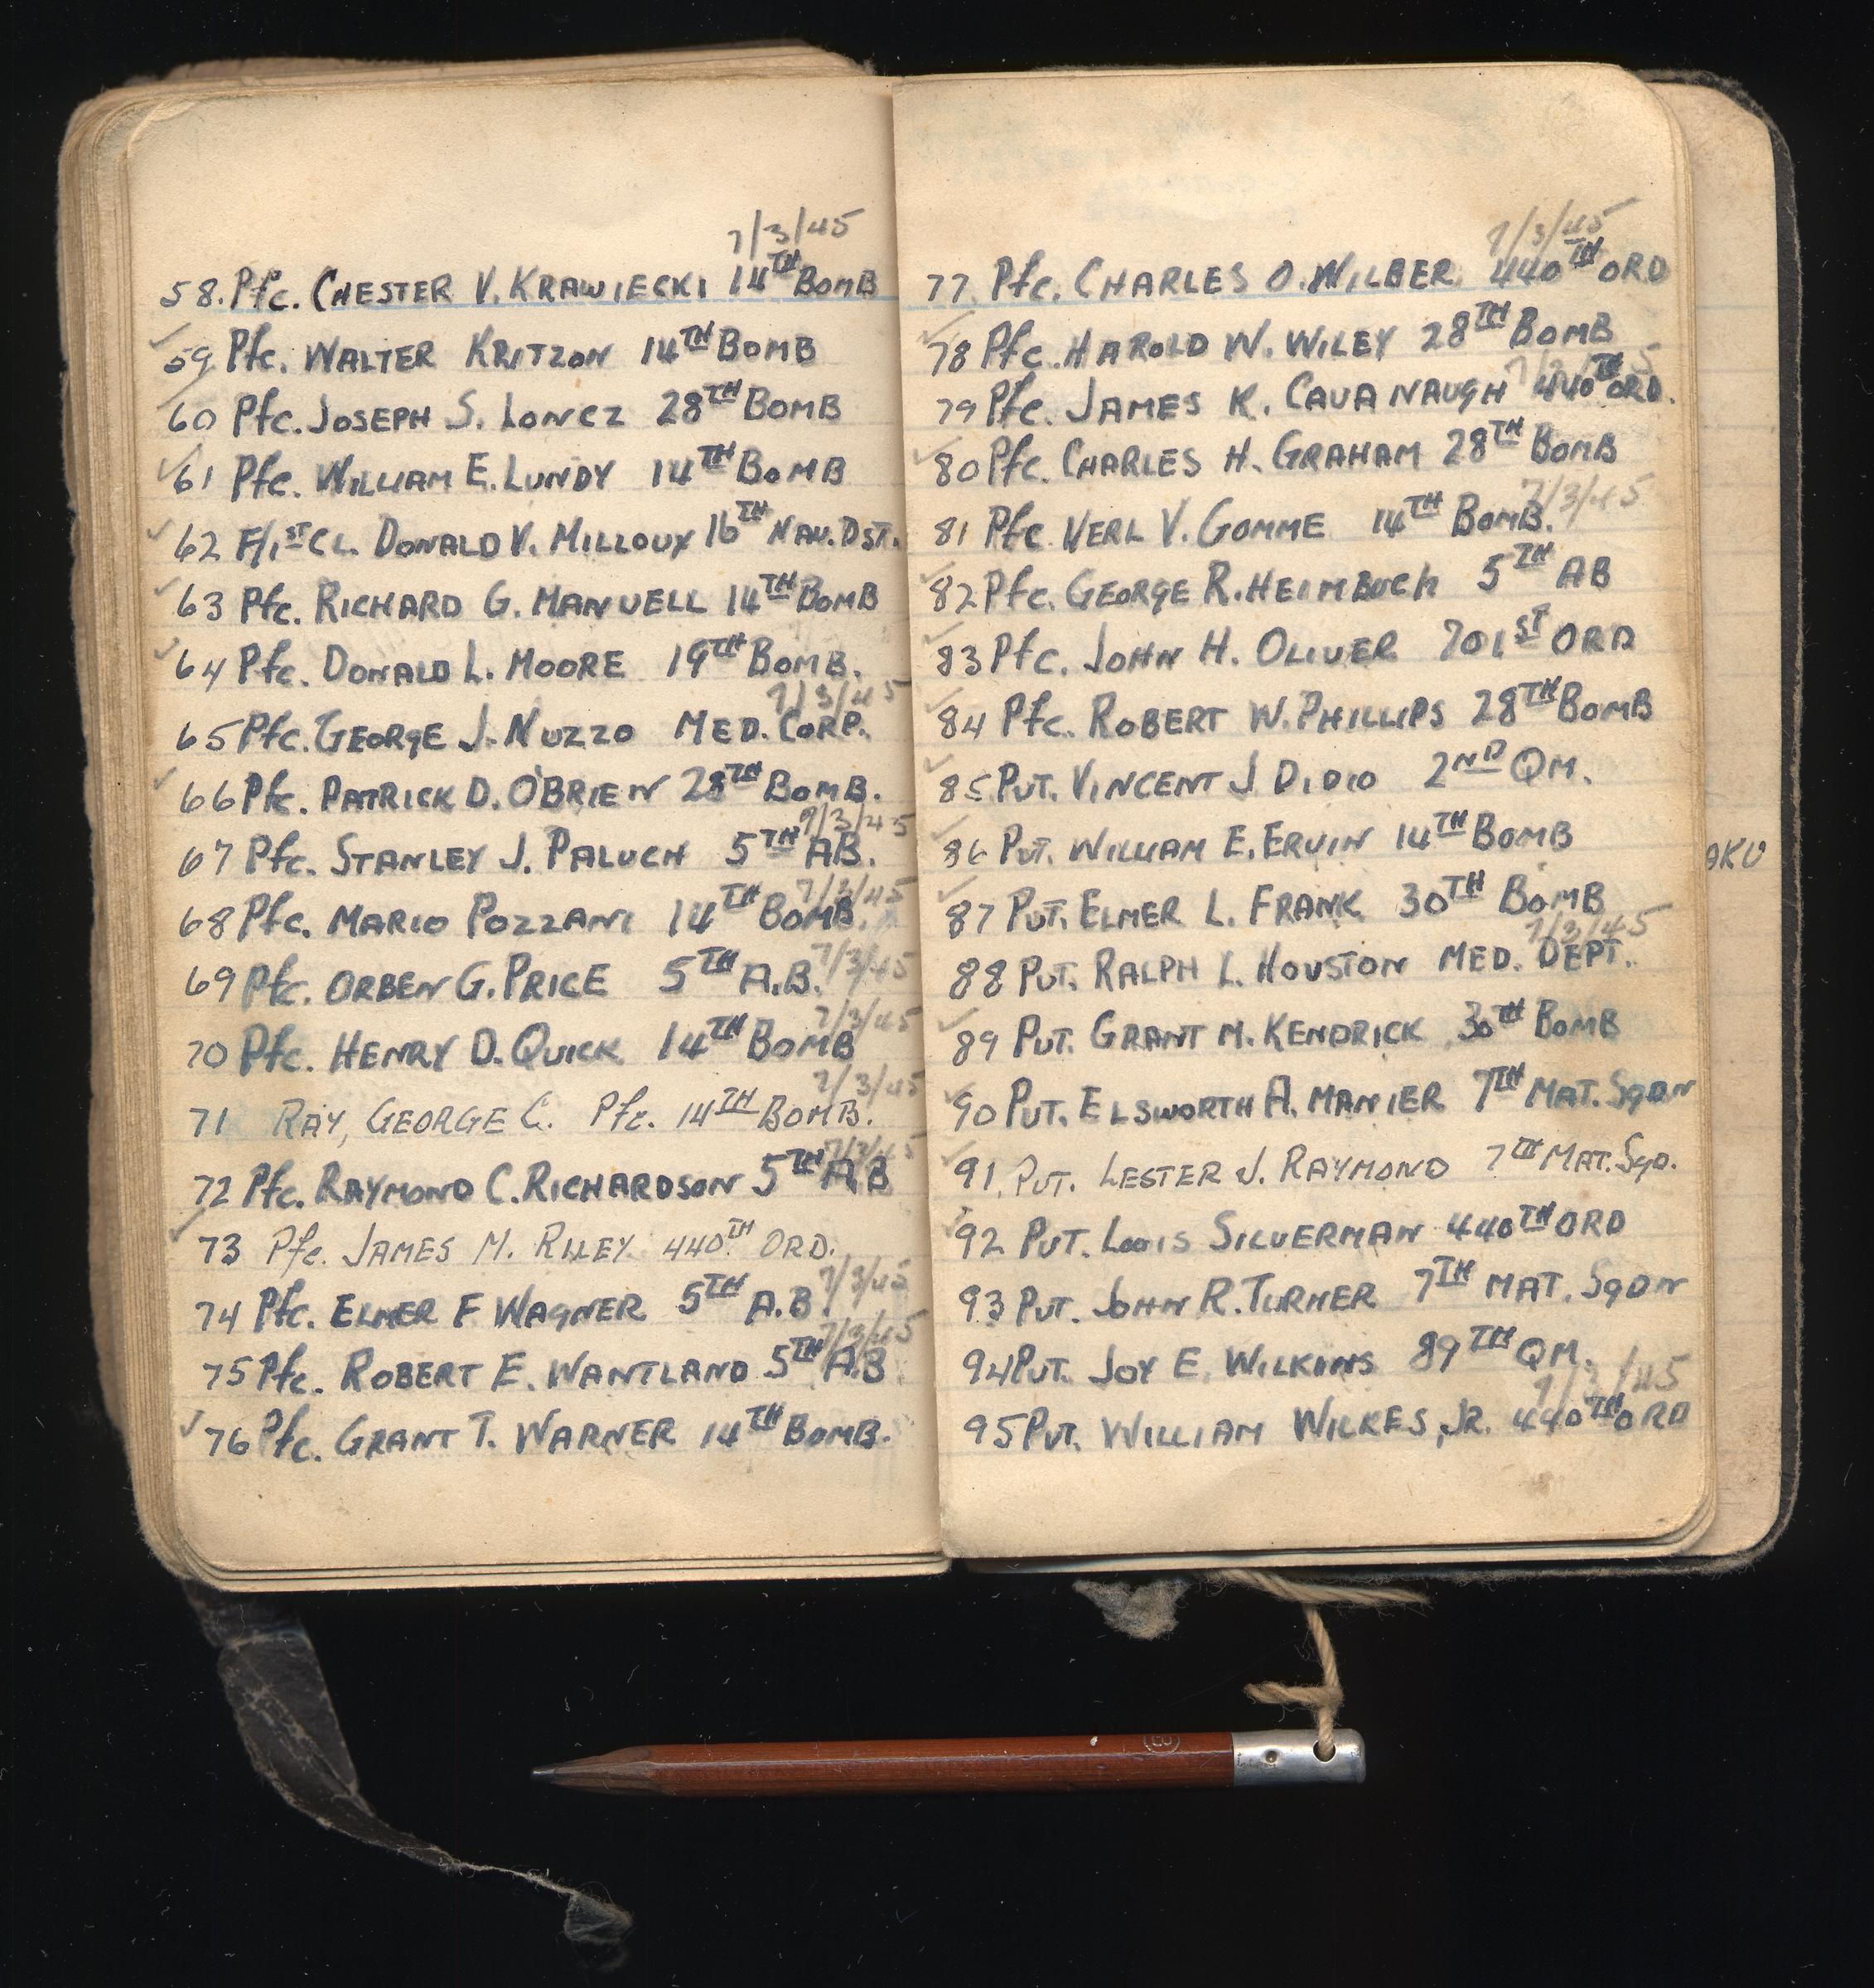 7/3/45
58. Pfc. CHESTER V. KRAWIECKI 14TH BOMB
✓
59 Pfc. WALTER KRITZON 14TH BOMB
60 Pfc. JOSEPH S. LONCZ 28TH BOMB
✓ 61 Pfc. WILLIAM E. LUNDY 14TH BOMB
✓ 62 F/1ST CL. DONALD V. MILLOUX 16TH NAV. DST.
✓ 63 Pfc. RICHARD G. MANUELL 14TH BOMB
✓ 64 Pfc. DONALD L. MOORE 19TH BOMB.
7/3/45
65 Pfc. GEORGE J. NUZZO MED. CORP.
✓ 66 Pfc. PATRICK D. O'BRIEN 28TH BOMB.
7/3/45
67 Pfc. STANLEY J. PALUCH 5TH AB.
7/3/45
68 Pfc. MARIO POZZANI 14TH BOMB.
7/3/45
69 Pfc. ORBEN G. PRICE 5TH A.B.
7/3/45
70 Pfc. HENRY D. QUICK 14TH BOMB
7/3/45
71 RAY, GEORGE C. Pfc. 14TH BOMB.
7/3/45
72 Pfc. RAYMOND C. RICHARDSON 5TH A.B
✓ 73 Pfc. JAMES M. RILEY 440TH ORD.
7/3/45
74 Pfc. ELMER F WAGNER 5TH A.B.
7/3/45
75 Pfc. ROBERT E. WANTLAND 5TH A.B
✓ 76 Pfc. GRANT T. WARNER 14TH BOMB.
7/3/45
77. Pfc. CHARLES O. WILBER. 440TH ORD
✓ 78 Pfc. HAROLD W. WILEY 28TH BOMB
79 Pfc. JAMES K. CAVANAUGH 440TH ORD.
✓ 80 Pfc. CHARLES H. GRAHAM 28TH BOMB
7/3/45
81 Pfc. VERL V. GOMME 14TH BOMB.
✓ 82 Pfc. GEORGE R. HEIMBUCH 5TH AB
✓ 83 Pfc. JOHN H. OLIVER 701ST ORD
✓ 84 Pfc. ROBERT W. PHILLIPS 28TH BOMB
✓ 85 PVT. VINCENT J DIDIO 2ND QM.
✓ 86 PVT. WILLIAM E. ERVIN 14TH BOMB
✓ 87 PVT. ELMER L. FRANK 30TH BOMB
7/3/45
88 PVT. RALPH L. HOUSTON MED. DEPT.
✓ 89 PVT. GRANT M. KENDRICK 30TH BOMB
✓ 90 PVT. ELSWORTH A. MANIER 7TH MAT. SqDN
✓ 91. PVT. LESTER J. RAYMOND 7TH MAT. SqD.
✓ 92 PVT. LOUIS SILVERMAN 440TH ORD
93 PVT. JOHN R. TURNER 7TH MAT. SqDN
94 PVT. JOY E. WILKINS 89TH QM.
7/3/45
95 PVT. WILLIAM WILKES, JR. 440TH ORD